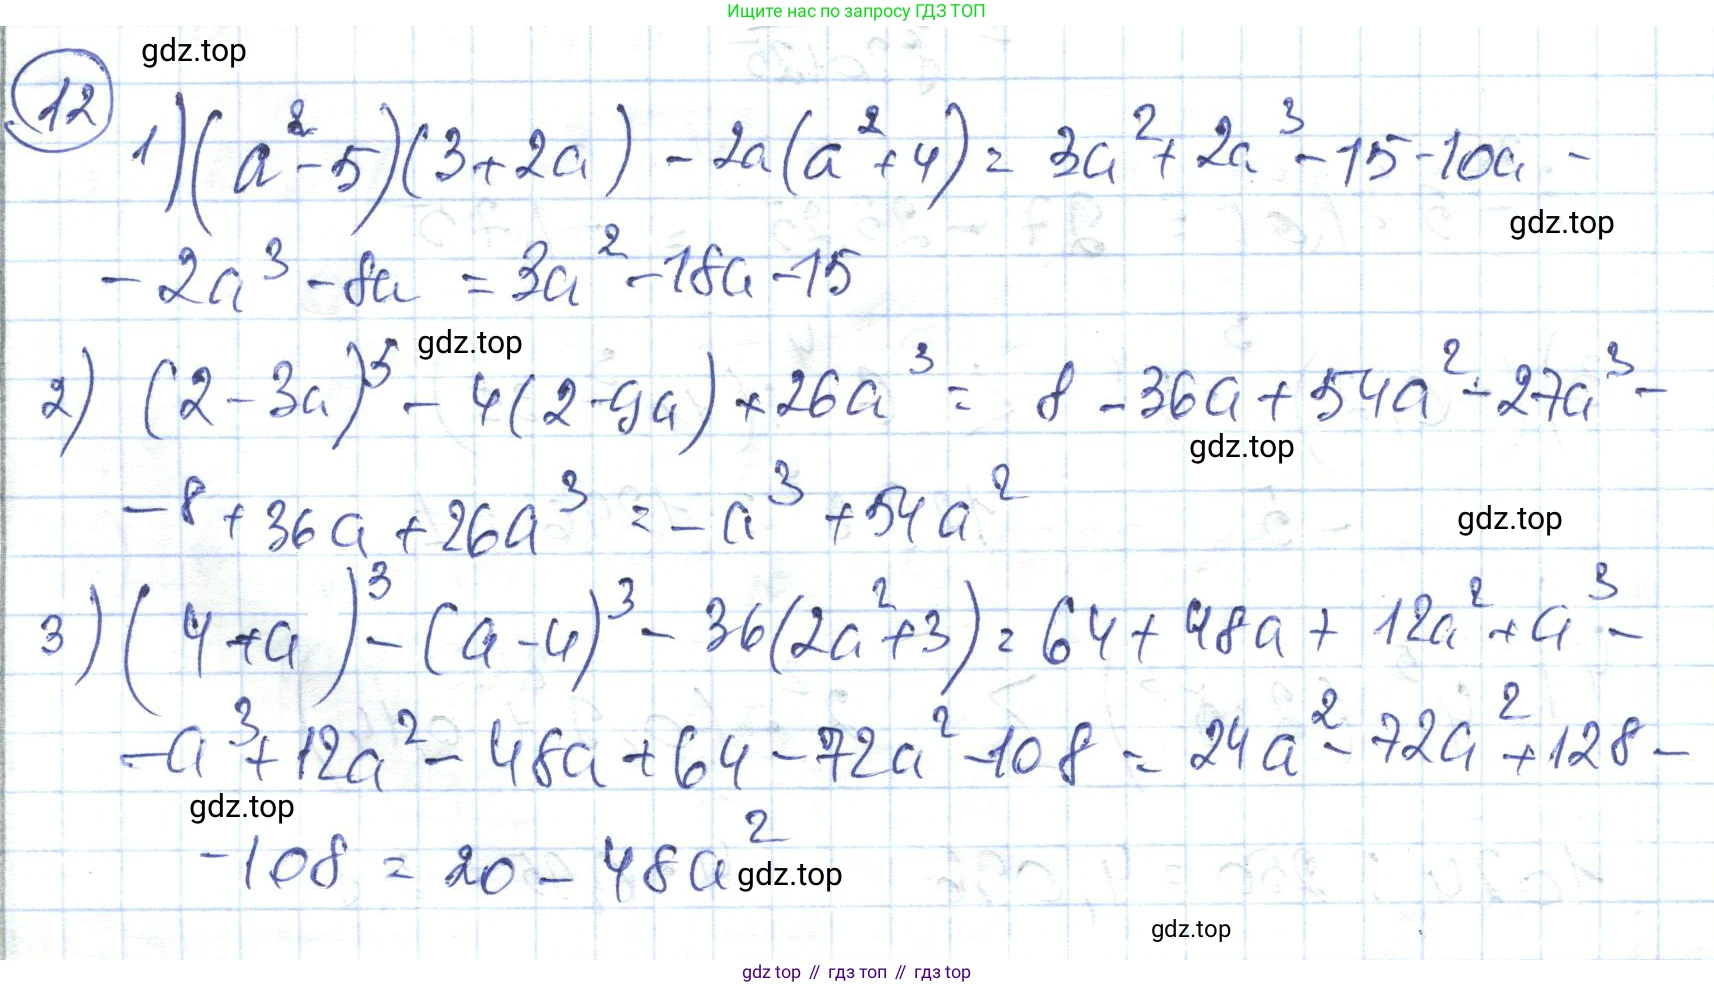 Ищите нас по запросу ГДЗ ТОП
gdz.top
12
1) (a² - 5)(3 + 2a) - 2a(a² + 4) = 3a² + 2a³ - 15 - 10a -
gdz.top
- 2a³ - 8a = 3a² - 18a - 15
gdz.top
2) (2 - 3a)⁵ - 4(2 - 9a) + 26a³ = 8 - 36a + 54a² - 27a³ -
gdz.top
- 8 + 36a + 26a³ = - a³ + 54a²
gdz.top
3) (4 + a)³ - (a - 4)³ - 36(2a² + 3) = 64 + 48a + 12a² + a³ -
- a³ + 12a² - 48a + 64 - 72a² - 108 = 24a² - 72a² + 128 -
gdz.top
- 108 = 20 - 48a²
gdz.top
gdz.top
gdz top // гдз топ // gdz top